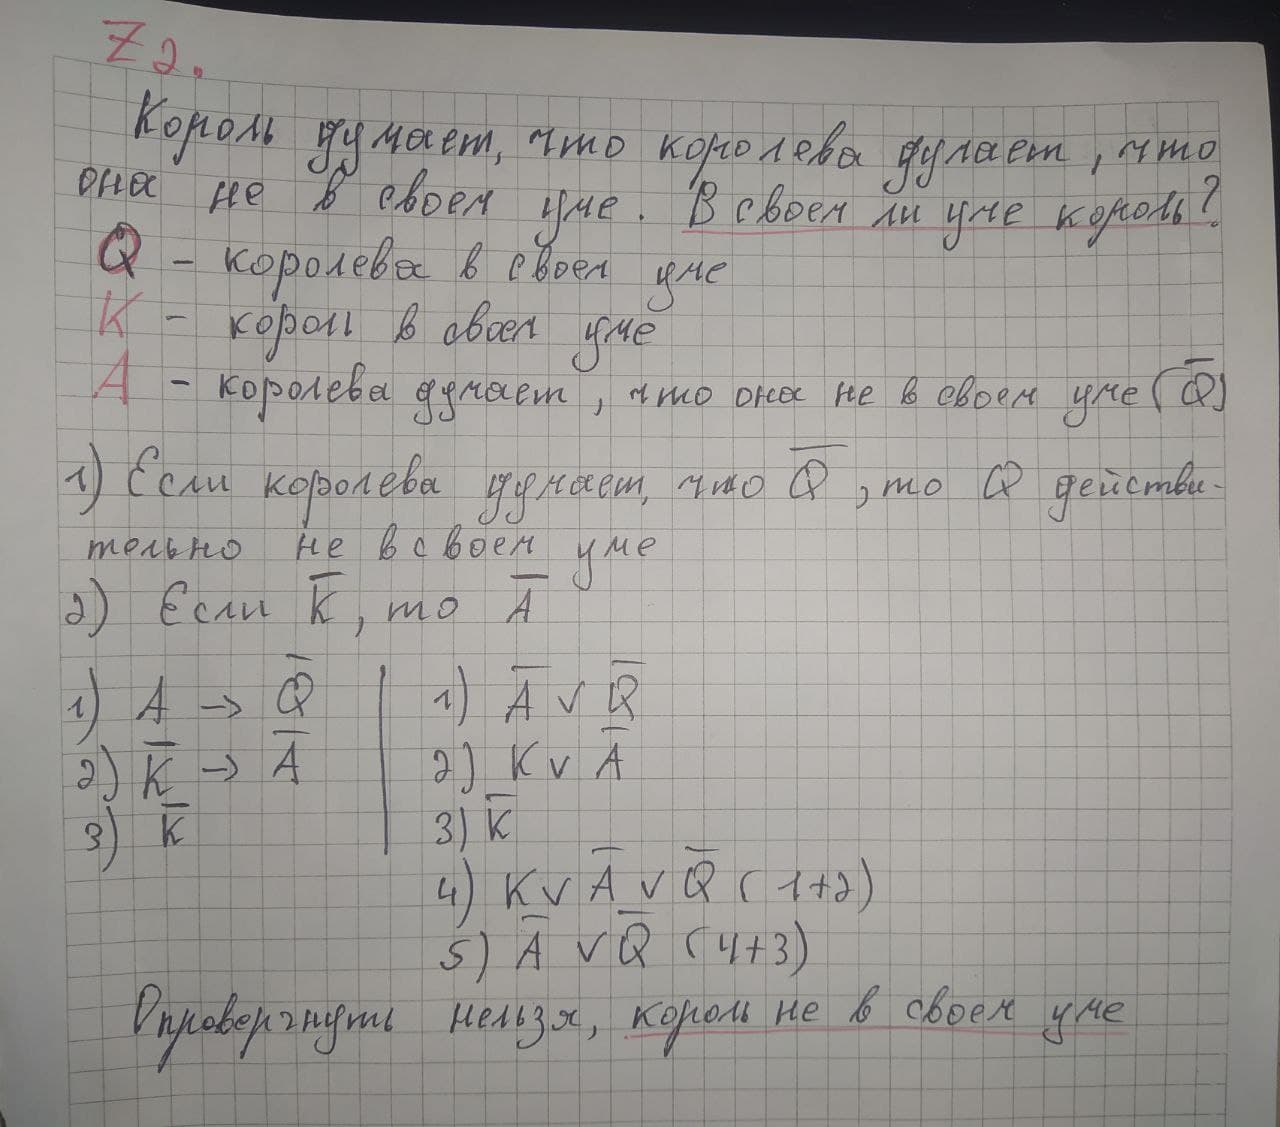 Z2.
Король думает, что королева думает, что
она не в своем уме. В своем ли уме король?
Q - королева в своем уме
K - король в своем уме
A - королева думает, что она не в своем уме (Q̅)
1) Если королева думает, что Q̅, то Q действи-
тельно не в своем уме
2) Если K̅, то A̅
1) A → Q̅ | 1) A̅ ∨ Q̅
2) K̅ → A̅ | 2) K ∨ A̅
3) K̅ | 3) K̅
4) K ∨ A̅ ∨ Q̅ (1+2)
5) A̅ ∨ Q̅ (4+3)
Опровергнуть нельзя, король не в своем уме